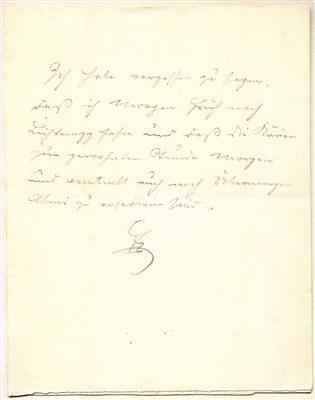 Ich habe vergessen zu sagen,
daß ich Morgen Früh nach
fahre und daß die
zur gewohnten Stunde Morgen
und auch noch Übermorgen
Abends zu expediren sind.